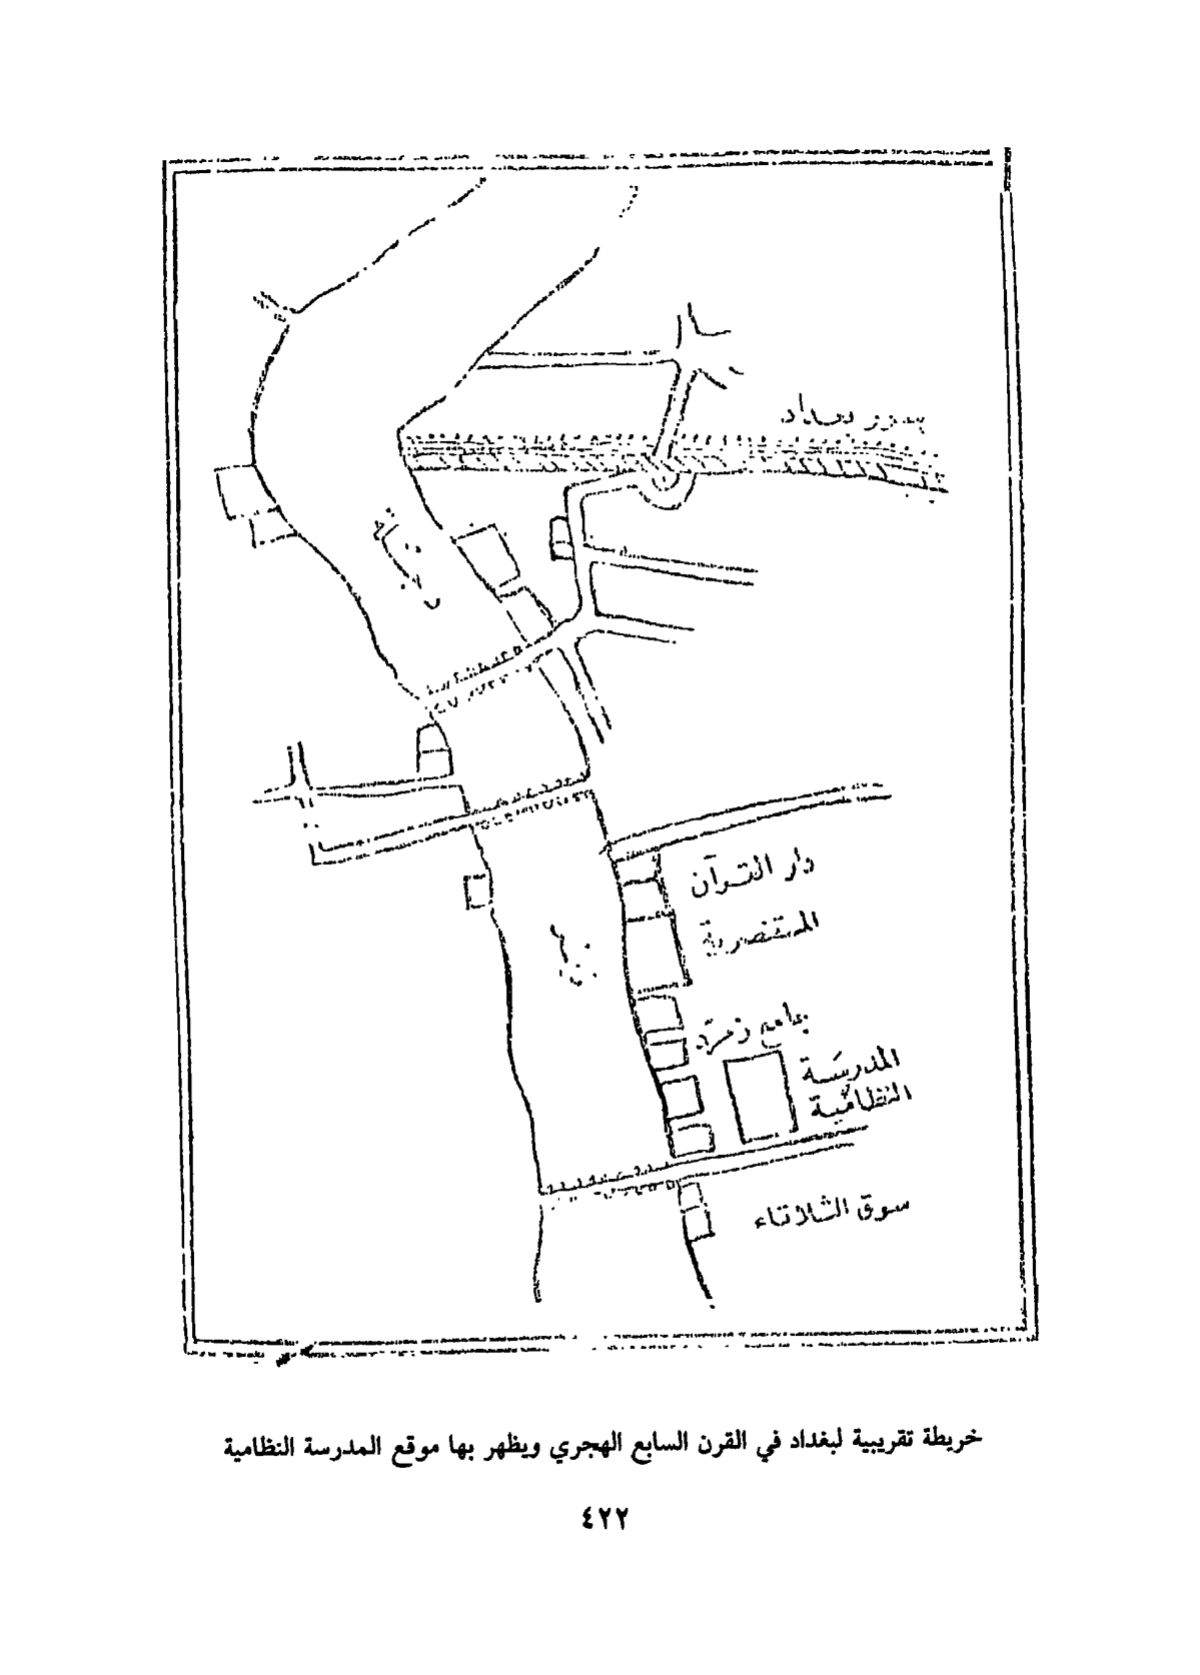 سور بغداد
دار القرآن
المستنصرية
جامع زمرّد
المدرسة
النظامية
سوق الثلاثاء
خريطة تقريبية لبغداد في القرن السابع الهجري ويظهر بها موقع المدرسة النظامية
٤٢٢